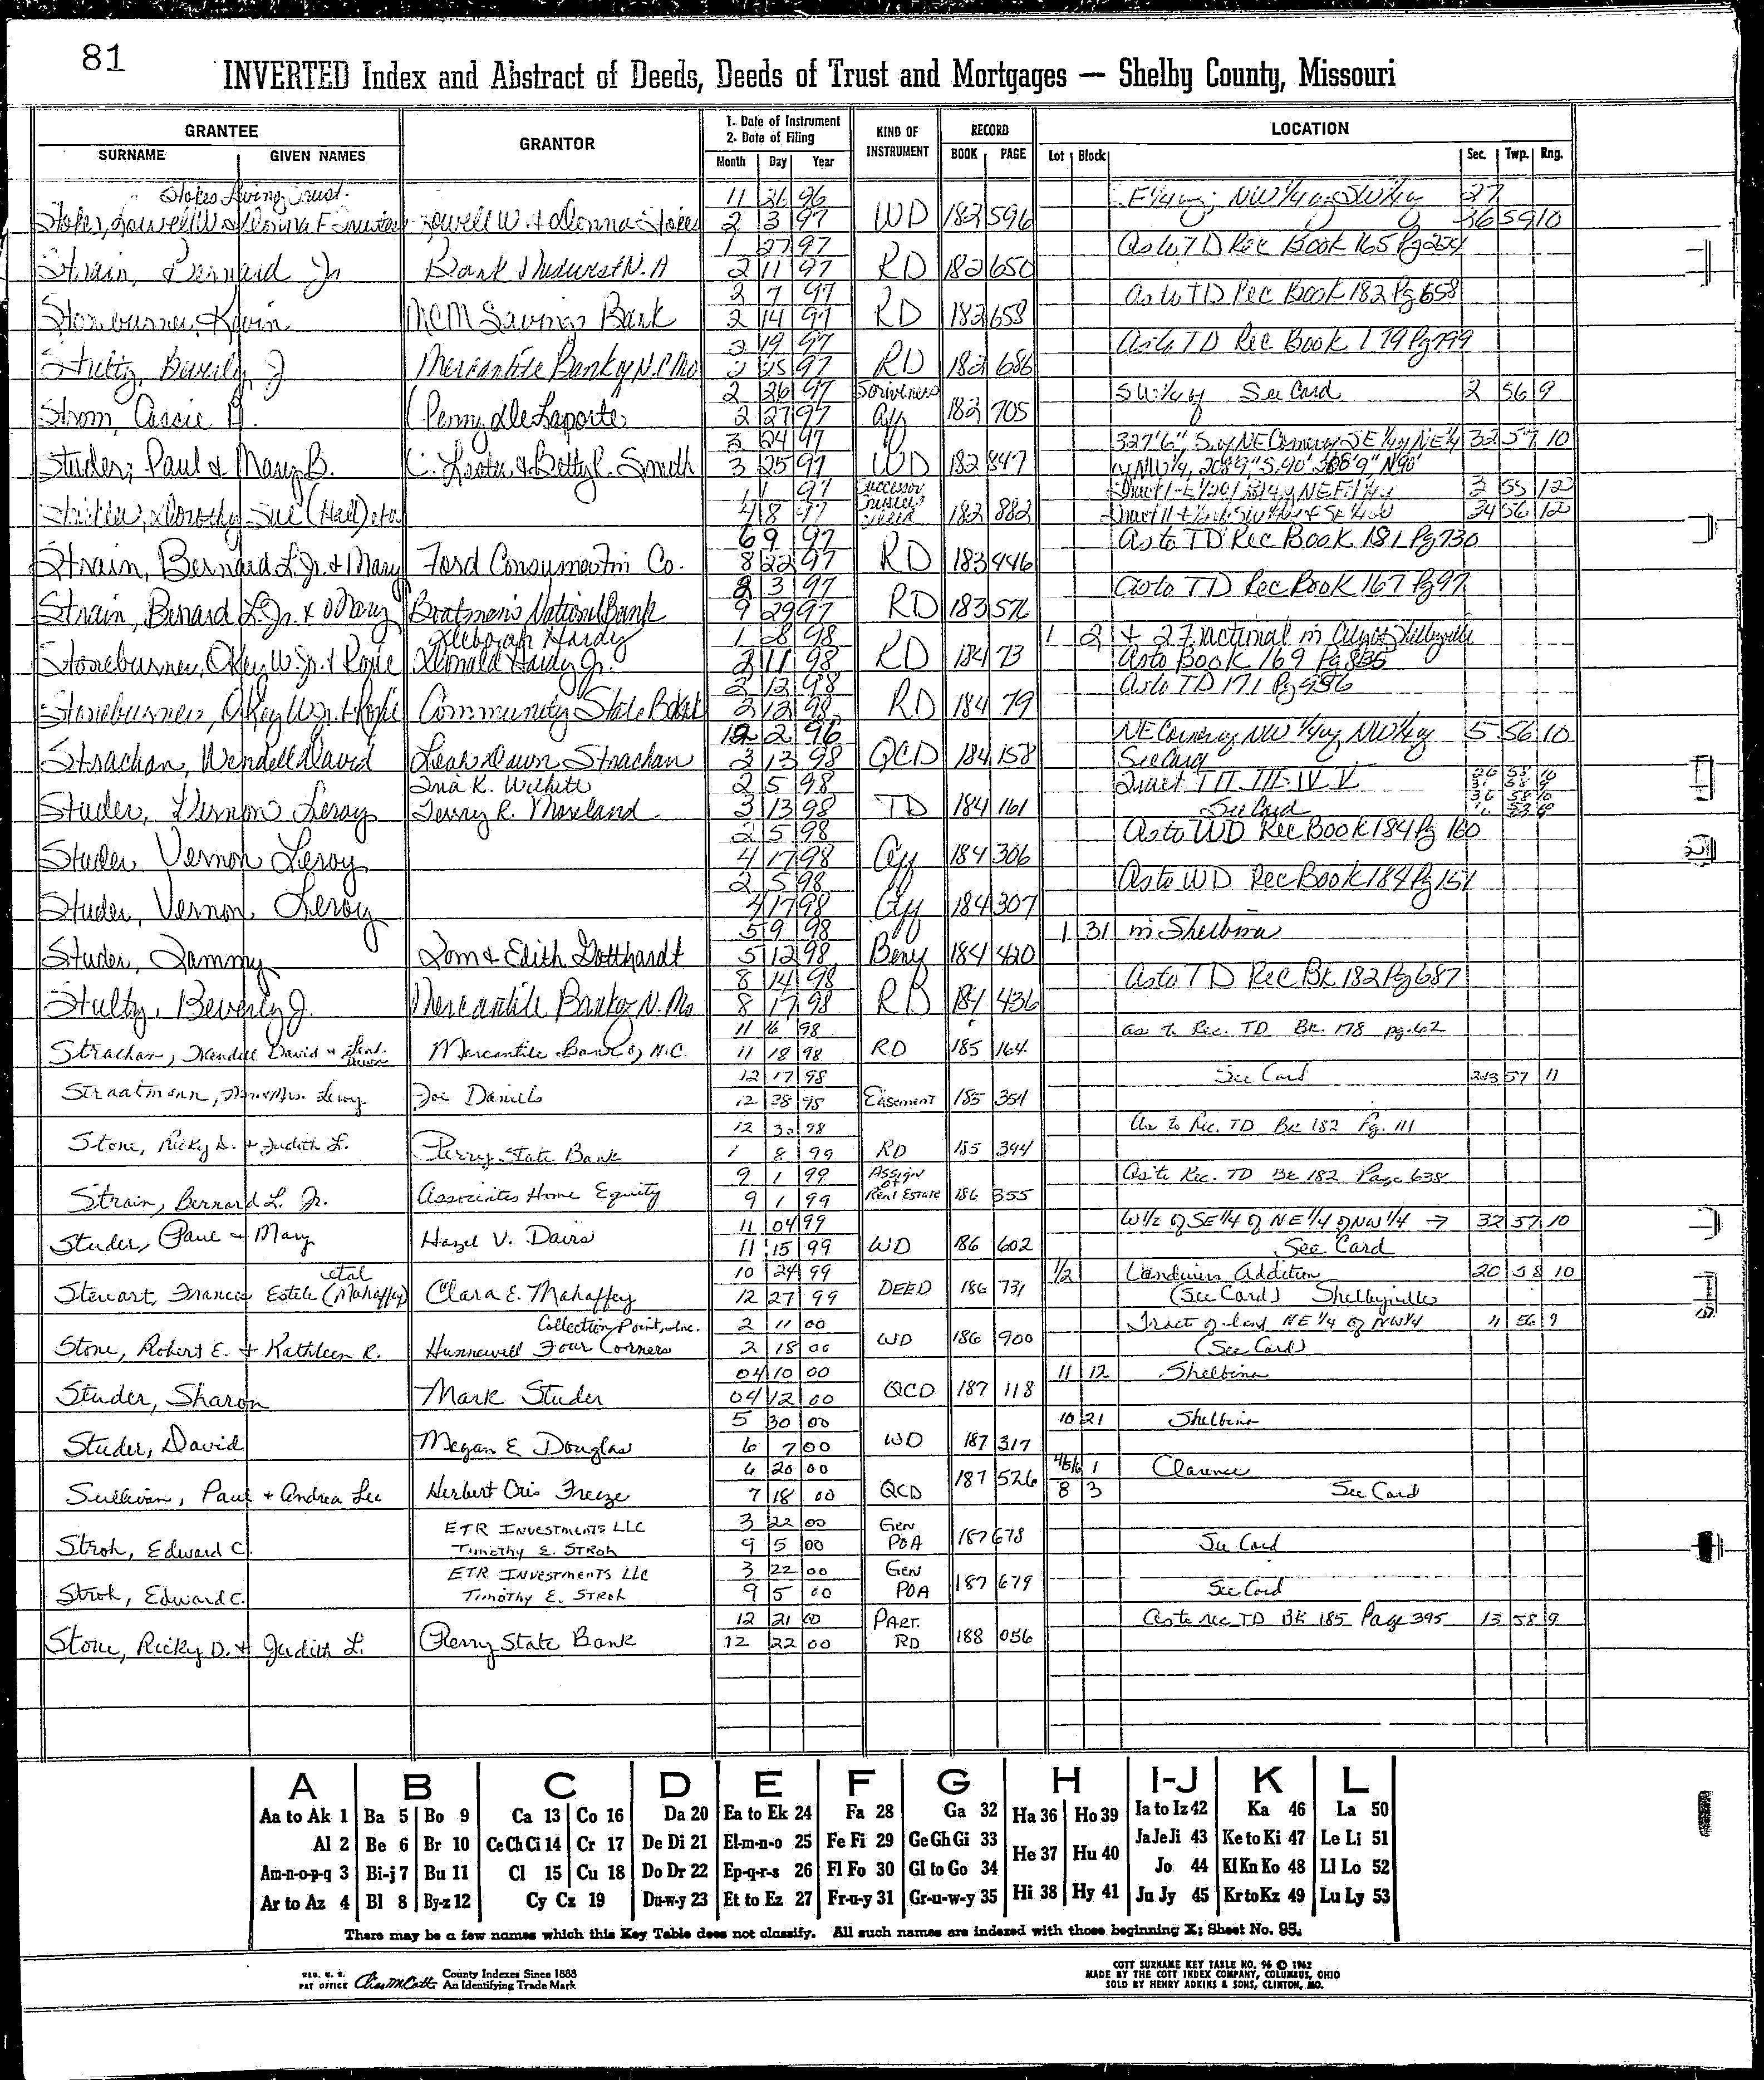 81
INVERTED Index and Abstract of Deeds, Deeds of Trust and Mortgages — Shelby County, Missouri
GRANTEE GRANTOR 1. Date of Instrument 2. Date of Filing KIND OF INSTRUMENT RECORD LOCATION
SURNAME GIVEN NAMES Month Day Year BOOK PAGE Lot Block Sec. Twp. Rng.
Stokes Living Trust 11 26 96 27
Stokes, Lowell W & Donna F Lowell W. & Donna Stokes 2 3 97 WD 182 596 36 59 10
1 27 97 As to TD Rec Book 165 Pg 224
Strain, Bernard Jr Bank Midwest N.A 2 11 97 RD 182 650
2 7 97 As to TD Rec Book 182 Pg 658
Stoneburner, Kevin MCM Savings Bank 2 14 97 RD 182 658
2 19 97 As to TD Rec Book 179 Pg 799
Stultz, Beverly J Mercantile Bank of N.C Mo 2 25 97 RD 182 686
2 26 97 Scriveners SW 1/4 of See Card 2 56 9
Strom, Cassie Penny DeLaporte 2 27 97 Aff 182 705
3 24 97 327'6" S. of NE Corner of SE 1/4 of NE 1/4 32 57 10
Studer, Paul & Mary B. C. Lester & Betty L. Smith 3 25 97 WD 182 847 of NW 1/4, 208'9" S. 90' 208'9" N 90'
1 97 Successor 3 55 12
Dorothy Sue (Hall) etal 4 8 97 Trustees 182 882 34 56 12
6 9 97 As to TD Rec Book 181 Pg 730
Strain, Bernard L. Jr. & Mary Ford Consumer Fin Co. 8 22 97 RD 183 446
3 97 As to TD Rec Book 167 Pg 97
Strain, Benard L. Jr. & Mary Boatmen's National Bank 9 29 97 RD 183 576
Deborah Hardy 1 28 98 1 2 + 2 Fractional in City of Shelbyville
Stoneburner, Okey W. Jr. & Rosie Donald Hardy Jr. 2 11 98 RD 184 73 As to Book 169 Pg 835
2 12 98 As to TD 171 Pg 956
Stoneburner, Okey W Jr. & Rosie Community State Bank 2 12 98 RD 184 79
12 2 96 NE Corner of NW 1/4 of NW 1/4 of 5 56 10
Strachan, Wendell David Leah Dawn Strachan 3 13 98 QCD 184 158 See Card
Ina K. Wilhite 2 5 98 Tract I II III IV V
Studer, Vernon Leroy Terry R. Moreland 3 13 98 TD 184 161 See Card
2 5 98 As to WD Rec Book 184 Pg 160
Studer Vernon Leroy 4 17 98 Aff 184 306
2 5 98 As to WD Rec Book 184 Pg 151
Studer, Vernon Leroy 4 17 98 Aff 184 307
5 9 98 1 31 in Shelbina
Studer, Tammy Tom & Edith Gotthardt 5 12 98 Beny 184 420
8 14 98 As to TD Rec Bk 182 Pg 687
Stultz, Beverly J. Mercantile Bank of N. Mo 8 17 98 RD 184 436
11 16 98 as to Rec. TD Bk. 178 pg. 62
Strachan, Wendell David & Leah Dawn Mercantile Bank of N.C. 11 18 98 RD 185 164
12 17 98 See Card 2&3 57 11
Straatmann, Mr & Mrs. Leroy Joe Daniels 12 28 98 Easement 185 354
12 30 98 As to Rec. TD Bk 182 Pg. 111
Stone, Ricky D. & Judith L. Perry State Bank 1 8 99 RD 185 394
9 1 99 Assign of As to Rec. TD Bk 182 Page 638
Strain, Bernard L. Jr. Associates Home Equity 9 1 99 Real Estate 186 355
11 04 99 W 1/2 of SE 1/4 of NE 1/4 of NW 1/4 → 32 57 10
Studer, Paul & Mary Hazel V. Davis 11 15 99 WD 186 602 See Card
etal 10 24 99 1/2 Landuirs Addition 20 58 10
Stewart, Frances Estele (Mahaffey) Clara E. Mahaffey 12 27 99 DEED 186 731 (See Card) Shelbyville
Collection Point, Inc. 2 11 00 Tract of land NE 1/4 of NW 1/4 11 56 9
Stone, Robert E. & Kathleen R. Hunnewell Four Corners 2 18 00 WD 186 900 (See Card)
04 10 00 11 12 Shelbina
Studer, Sharon Mark Studer 04 12 00 QCD 187 118
5 30 00 10 21 Shelbina
Studer, David Megan E Douglas 6 7 00 WD 187 317
6 20 00 4/5/6 1 Clarence
Sullivan, Paul & Andrea Lee Herbert Oris Freeze 7 18 00 QCD 187 526 8 3 See Card
ETR Investments LLC 3 22 00 Gen
Stroh, Edward C. Timothy E. Stroh 9 5 00 POA 187 678 See Card
ETR Investments LLC 3 22 00 Gen
Stroh, Edward C. Timothy E. Stroh 9 5 00 POA 187 679 See Card
12 21 00 Part. As to rec TD Bk 185 Page 395 13 58 9
Stone, Ricky D. & Judith L. Perry State Bank 12 22 00 RD 188 056
A B C D E F G H I-J K L
Aa to Ak 1 Ba 5 Bo 9 Ca 13 Co 16 Da 20 Ea to Ek 24 Fa 28 Ga 32 Ha 36 Ho 39 Ia to Iz 42 Ka 46 La 50
Al 2 Be 6 Br 10 Ce Ch Ci 14 Cr 17 De Di 21 El-m-n-o 25 Fe Fi 29 Ge Gh Gi 33 He 37 Hu 40 Ja Je Ji 43 Ke to Ki 47 Le Li 51
Am-n-o-p-q 3 Bi-j 7 Bu 11 Cl 15 Cu 18 Do Dr 22 Ep-q-r-s 26 Fl Fo 30 Gl to Go 34 Jo 44 Kl Kn Ko 48 Ll Lo 52
Ar to Az 4 Bl 8 By-z 12 Cy Cz 19 Du-w-y 23 Et to Ez 27 Fr-u-y 31 Gr-u-w-y 35 Hi 38 Hy 41 Ju Jy 45 Kr to Kz 49 Lu Ly 53
There may be a few names which this Key Table does not classify. All such names are indexed with those beginning X; Sheet No. 95.
REG. U. S. PAT OFFICE County Indexes Since 1888 An Identifying Trade Mark
COTT SURNAME KEY TABLE NO. 96 © 1962
MADE BY THE COTT INDEX COMPANY, COLUMBUS, OHIO
SOLD BY HENRY ADKINS & SONS, CLINTON, MO.